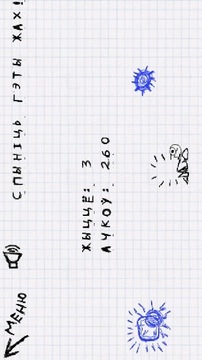 СПЫНІЦЬ ГЭТЫ ЖАХ!
ЖЫЦЦЁ: 3
АЧКОЎ: 260
МЕНЮ